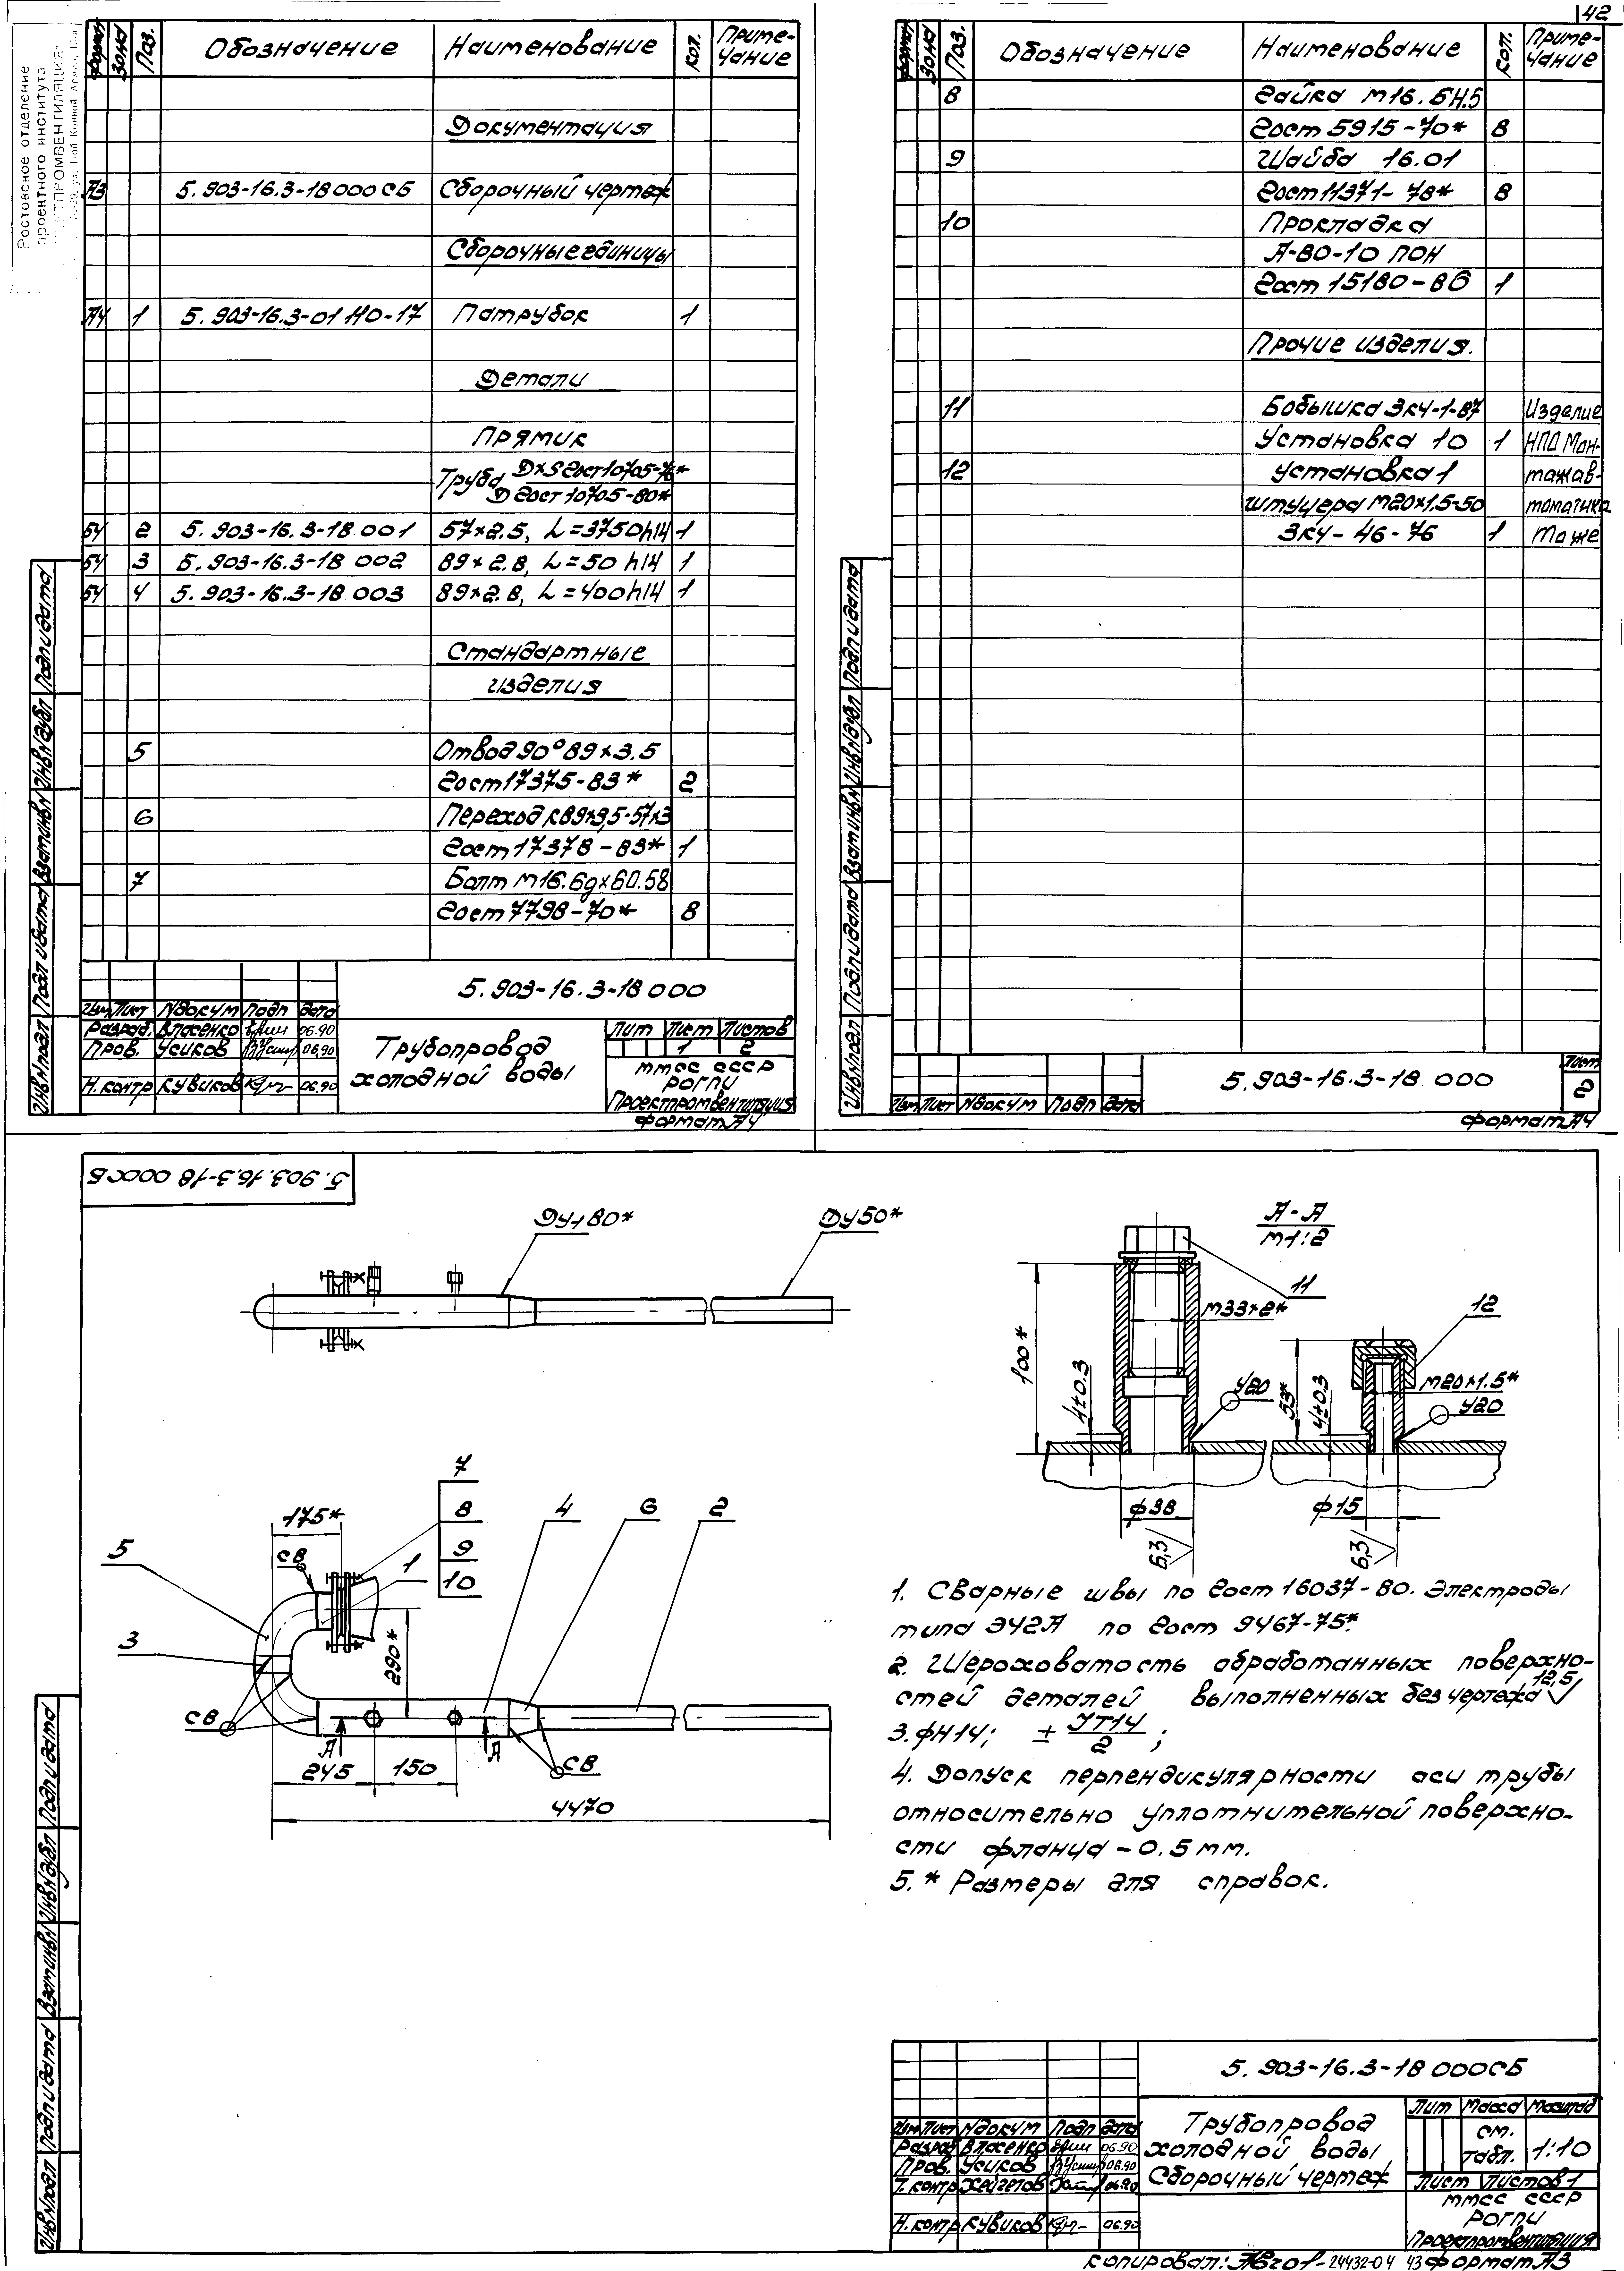 42
Ростовское отделение
проектного института
Формат Зона Поз. Обозначение Наименование Кол. Приме-
чание
Документация
А3 5.903-16.3-18 000 СБ Сборочный чертеж
Сборочные единицы
А4 1 5.903-16.3-01 110-17 Патрубок 1
Детали
Прямик
Труба D×S Гост 10705-76*
D Гост 10705-80*
БЧ 2 5.903-16.3-18.001 57×2.5, L=3750h14 1
БЧ 3 5.903-16.3-18.002 89×2.8, L=50 h14 1
БЧ 4 5.903-16.3-18.003 89×2.8, L=400h14 1
Стандартные
изделия
5 Отвод 90° 89×3.5
Гост 17375-83* 2
6 Переход К89×3,5-57×3
Гост 17378-83* 1
7 Болт М16.6g×60.58
Гост 7798-70* 8
5.903-16.3-18 000
Изм Лист № докум Подп Дата
Разраб. Власенко 06.90
Пров. Усиков 06.90
Н. контр Кувиков 06.90
Трубопровод
холодной воды
Лит Лист Листов
1 2
ММСС СССР
РОГПИ
Проектпромвентиляция
Формат А4
Инв № подл Подп и дата Взам инв № Инв № дубл Подп и дата
Формат Зона Поз. Обозначение Наименование Кол. Приме-
чание
8 Гайка М16.6Н.5
Гост 5915-70* 8
9 Шайба 16.01
Гост 11371-78* 8
10 Прокладка
А-80-10 ПОН
Гост 15180-86 1
Прочие изделия.
11 Бобышка ЗК4-1-87 Изделие
Установка 10 1 НПО Мон-
12 Установка 1 тажав-
штуцера М20×1.5-50 томатика
ЗК4-46-76 1 То же
5.903-16.3-18 000
Изм Лист № докум Подп Дата
Лист
2
Формат А4
Инв № подл Подп и дата Взам инв № Инв № дубл Подп и дата
5.903.16.3-18 000СБ
Ду 80*
Ду 50*
А-А
М1:2
11
М33×2*
100*
4±0.3
У20
12
53*
4±0.3
М20×1.5*
У20
ф38
ф15
6,3
6,3
7
8
9
10
175*
СВ
1
4
6
2
5
3
290*
СВ
А
А
СВ
245
150
4470
1. Сварные швы по Гост 16037-80. Электроды
типа Э42А по Гост 9467-75*.
2. Шероховатость обработанных поверхно-
стей деталей выполненных без чертежа 12,5
3. фН14; ± JT14/2;
4. Допуск перпендикулярности оси трубы
относительно уплотнительной поверхно-
сти фланца - 0.5 мм.
5. * Размеры для справок.
5.903-16.3-18 000СБ
Изм Лист № докум Подп Дата
Разраб Власенко 06.90
Пров. Усиков 06.90
Т. контр Хейгетов 06.90
Н. контр Кувиков 06.90
Трубопровод
холодной воды
Сборочный чертеж
Лит Масса Масштаб
см.
табл. 1:10
Лист Листов 1
ММСС СССР
РОГПИ
Проектпромвентиляция
Инв № подл Подп и дата Взам инв № Инв № дубл Подп и дата
Копировал: 24432-04 43 Формат А3